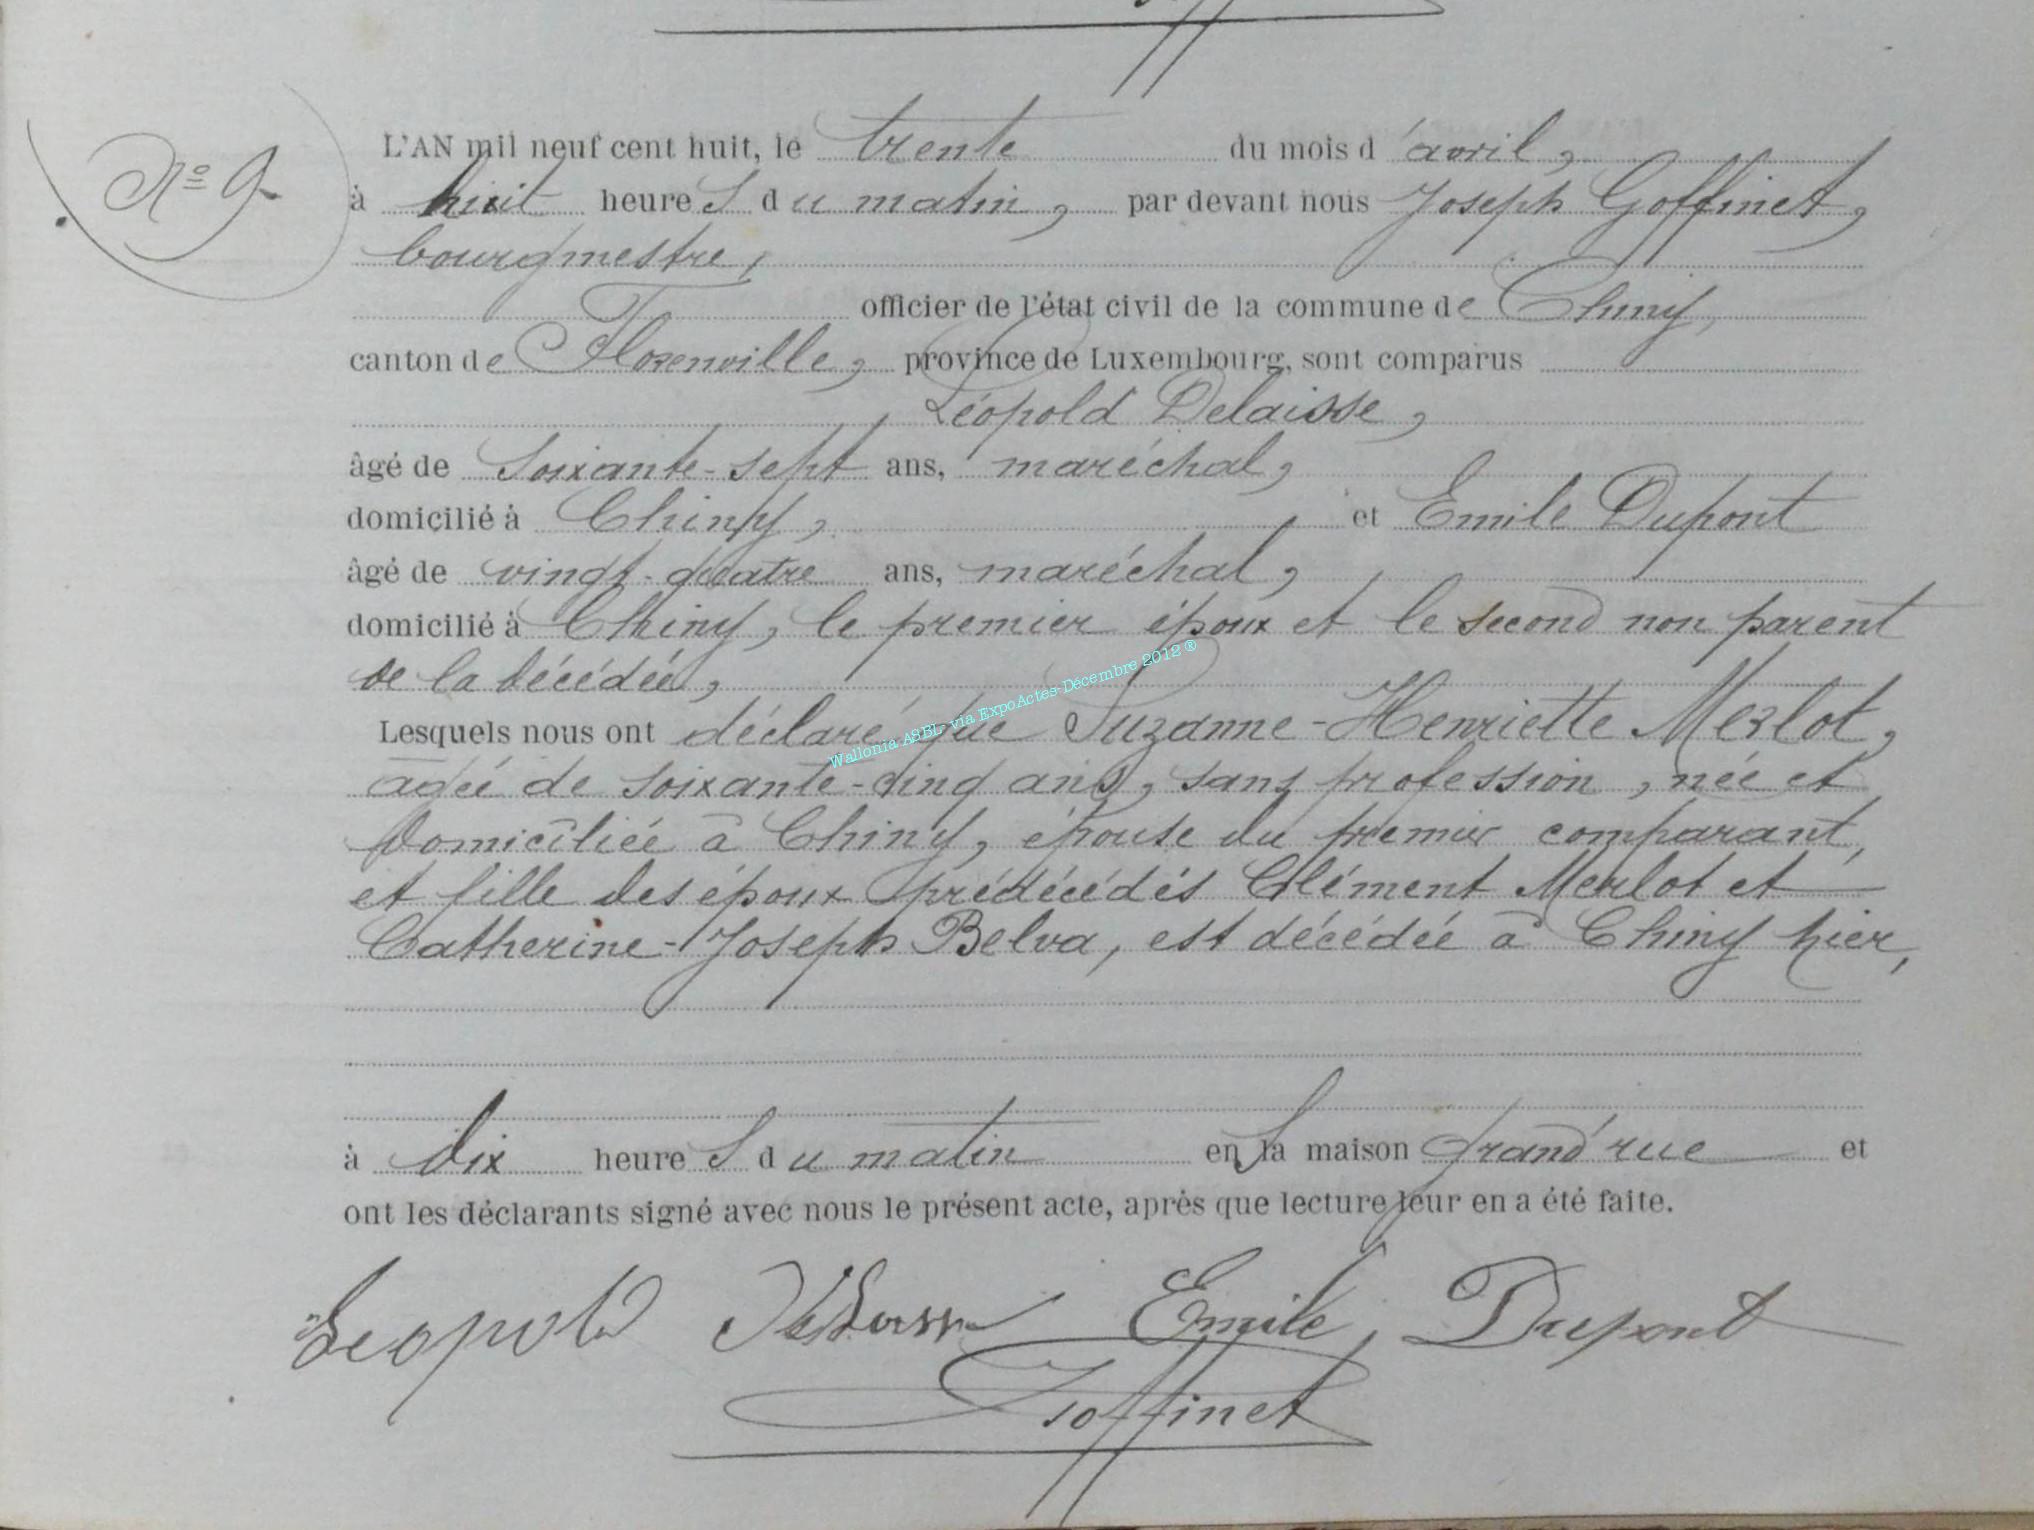 N° 9
L'AN mil neuf cent huit, le trente du mois d'avril,
à huit heures du matin, par devant nous Joseph Goffinet,
bourgmestre,
officier de l'état civil de la commune de Chiny,
canton de Florenville, province de Luxembourg, sont comparus
Léopold Delaisse,
âgé de soixante-sept ans, maréchal,
domicilié à Chiny, et Emile Dupont
âgé de vingt-quatre ans, maréchal,
domicilié à Chiny, le premier époux et le second non parent
de la décédée,
Lesquels nous ont déclaré que Suzanne-Henriette Merlot,
agée de soixante-cinq ans, sans profession, née et
domiciliée à Chiny, épouse du premier comparant,
et fille des époux prédécédés Clément Merlot et
Catherine-Joseph Belva, est décédée à Chiny hier,
à dix heures du matin en sa maison grand'rue et
ont les déclarants signé avec nous le présent acte, après que lecture leur en a été faite.
Leopold Emile Dupont
Goffinet
Wallonia ASBL via ExpoActes-Décembre 2012 ®